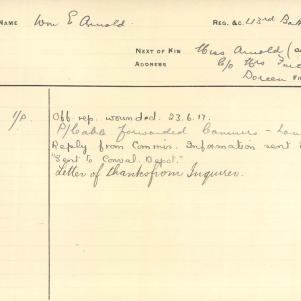 NAME Wm E Arnold. REG. &C. 43rd Bat
NEXT OF KIN Miss Arnold (
ADDRESS C/o Mrs
Doreen
1/P. Off. rep. wounded. 23.6.17.
P/Cable forwarded Commrs -
Reply from Commis. Information sent
"Sent to Conval. Depot."
Letter of thanks from Inquirer.